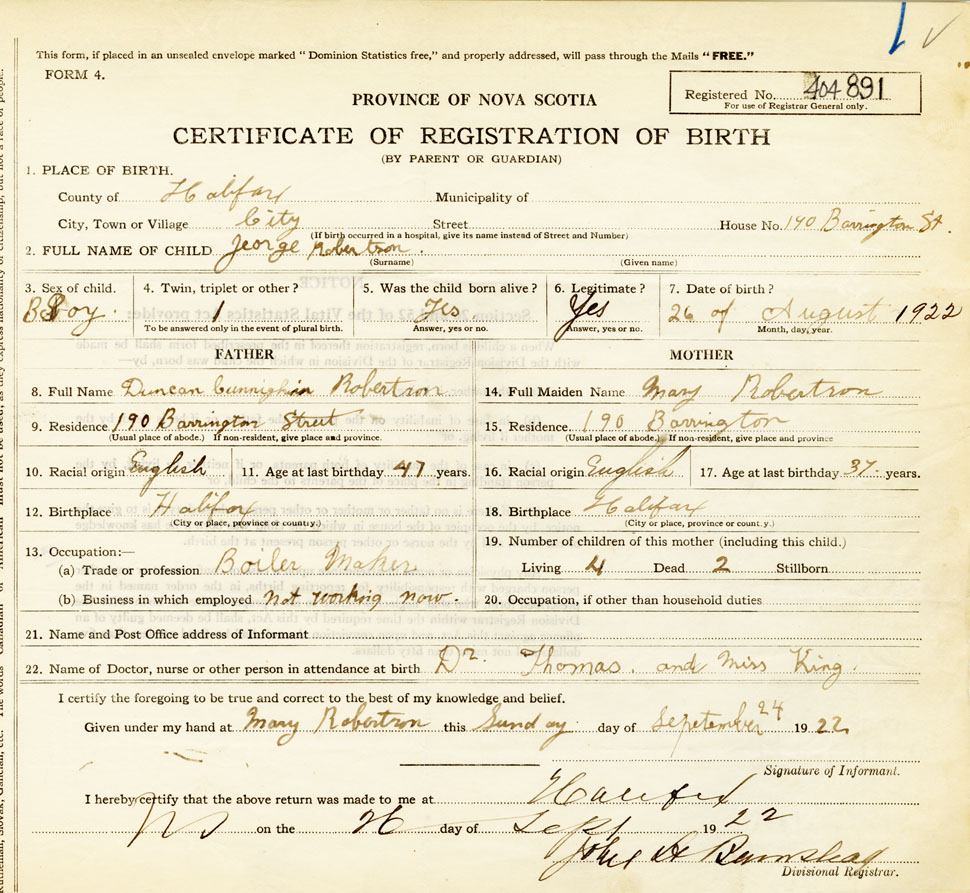 This form, if placed in an unsealed envelope marked " Dominion Statistics free," and properly addressed, will pass through the Mails " FREE."
FORM 4.
Registered No. 404 891
For use of Registrar General only.
PROVINCE OF NOVA SCOTIA
CERTIFICATE OF REGISTRATION OF BIRTH
(BY PARENT OR GUARDIAN)
1. PLACE OF BIRTH.
County of Halifax Municipality of
City, Town or Village City Street House No. 190 Barrington St.
(If birth occurred in a hospital, give its name instead of Street and Number)
2. FULL NAME OF CHILD George Robertson.
(Surname) (Given name)
3. Sex of child. 4. Twin, triplet or other ? 5. Was the child born alive ? 6. Legitimate ? 7. Date of birth ?
Boy. 1 Yes Yes 26 of August 1922
To be answered only in the event of plural birth. Answer, yes or no. Answer, yes or no. Month, day, year.
FATHER MOTHER
8. Full Name Duncan Robertson 14. Full Maiden Name Mary Robertson
9. Residence 190 Barrington Street 15. Residence 190 Barrington
(Usual place of abode.) If non-resident, give place and province. (Usual place of abode.) If non-resident, give place and province
10. Racial origin English 11. Age at last birthday 47 years. 16. Racial origin English 17. Age at last birthday 37 years.
12. Birthplace Halifax 18. Birthplace Halifax
(City or place, province or country.) (City or place, province or count.y.)
13. Occupation:— 19. Number of children of this mother (including this child.)
(a) Trade or profession Boiler Maker Living 4 Dead 2 Stillborn
(b) Business in which employed not working now. 20. Occupation, if other than household duties
21. Name and Post Office address of Informant
22. Name of Doctor, nurse or other person in attendance at birth Dr. Thomas. and Miss King.
I certify the foregoing to be true and correct to the best of my knowledge and belief.
Given under my hand at Mary Robertson this Sunday day of September 24 1922
Signature of Informant.
I hereby certify that the above return was made to me at Halifax
NS on the day of Sept 1922
John A
Divisional Registrar.